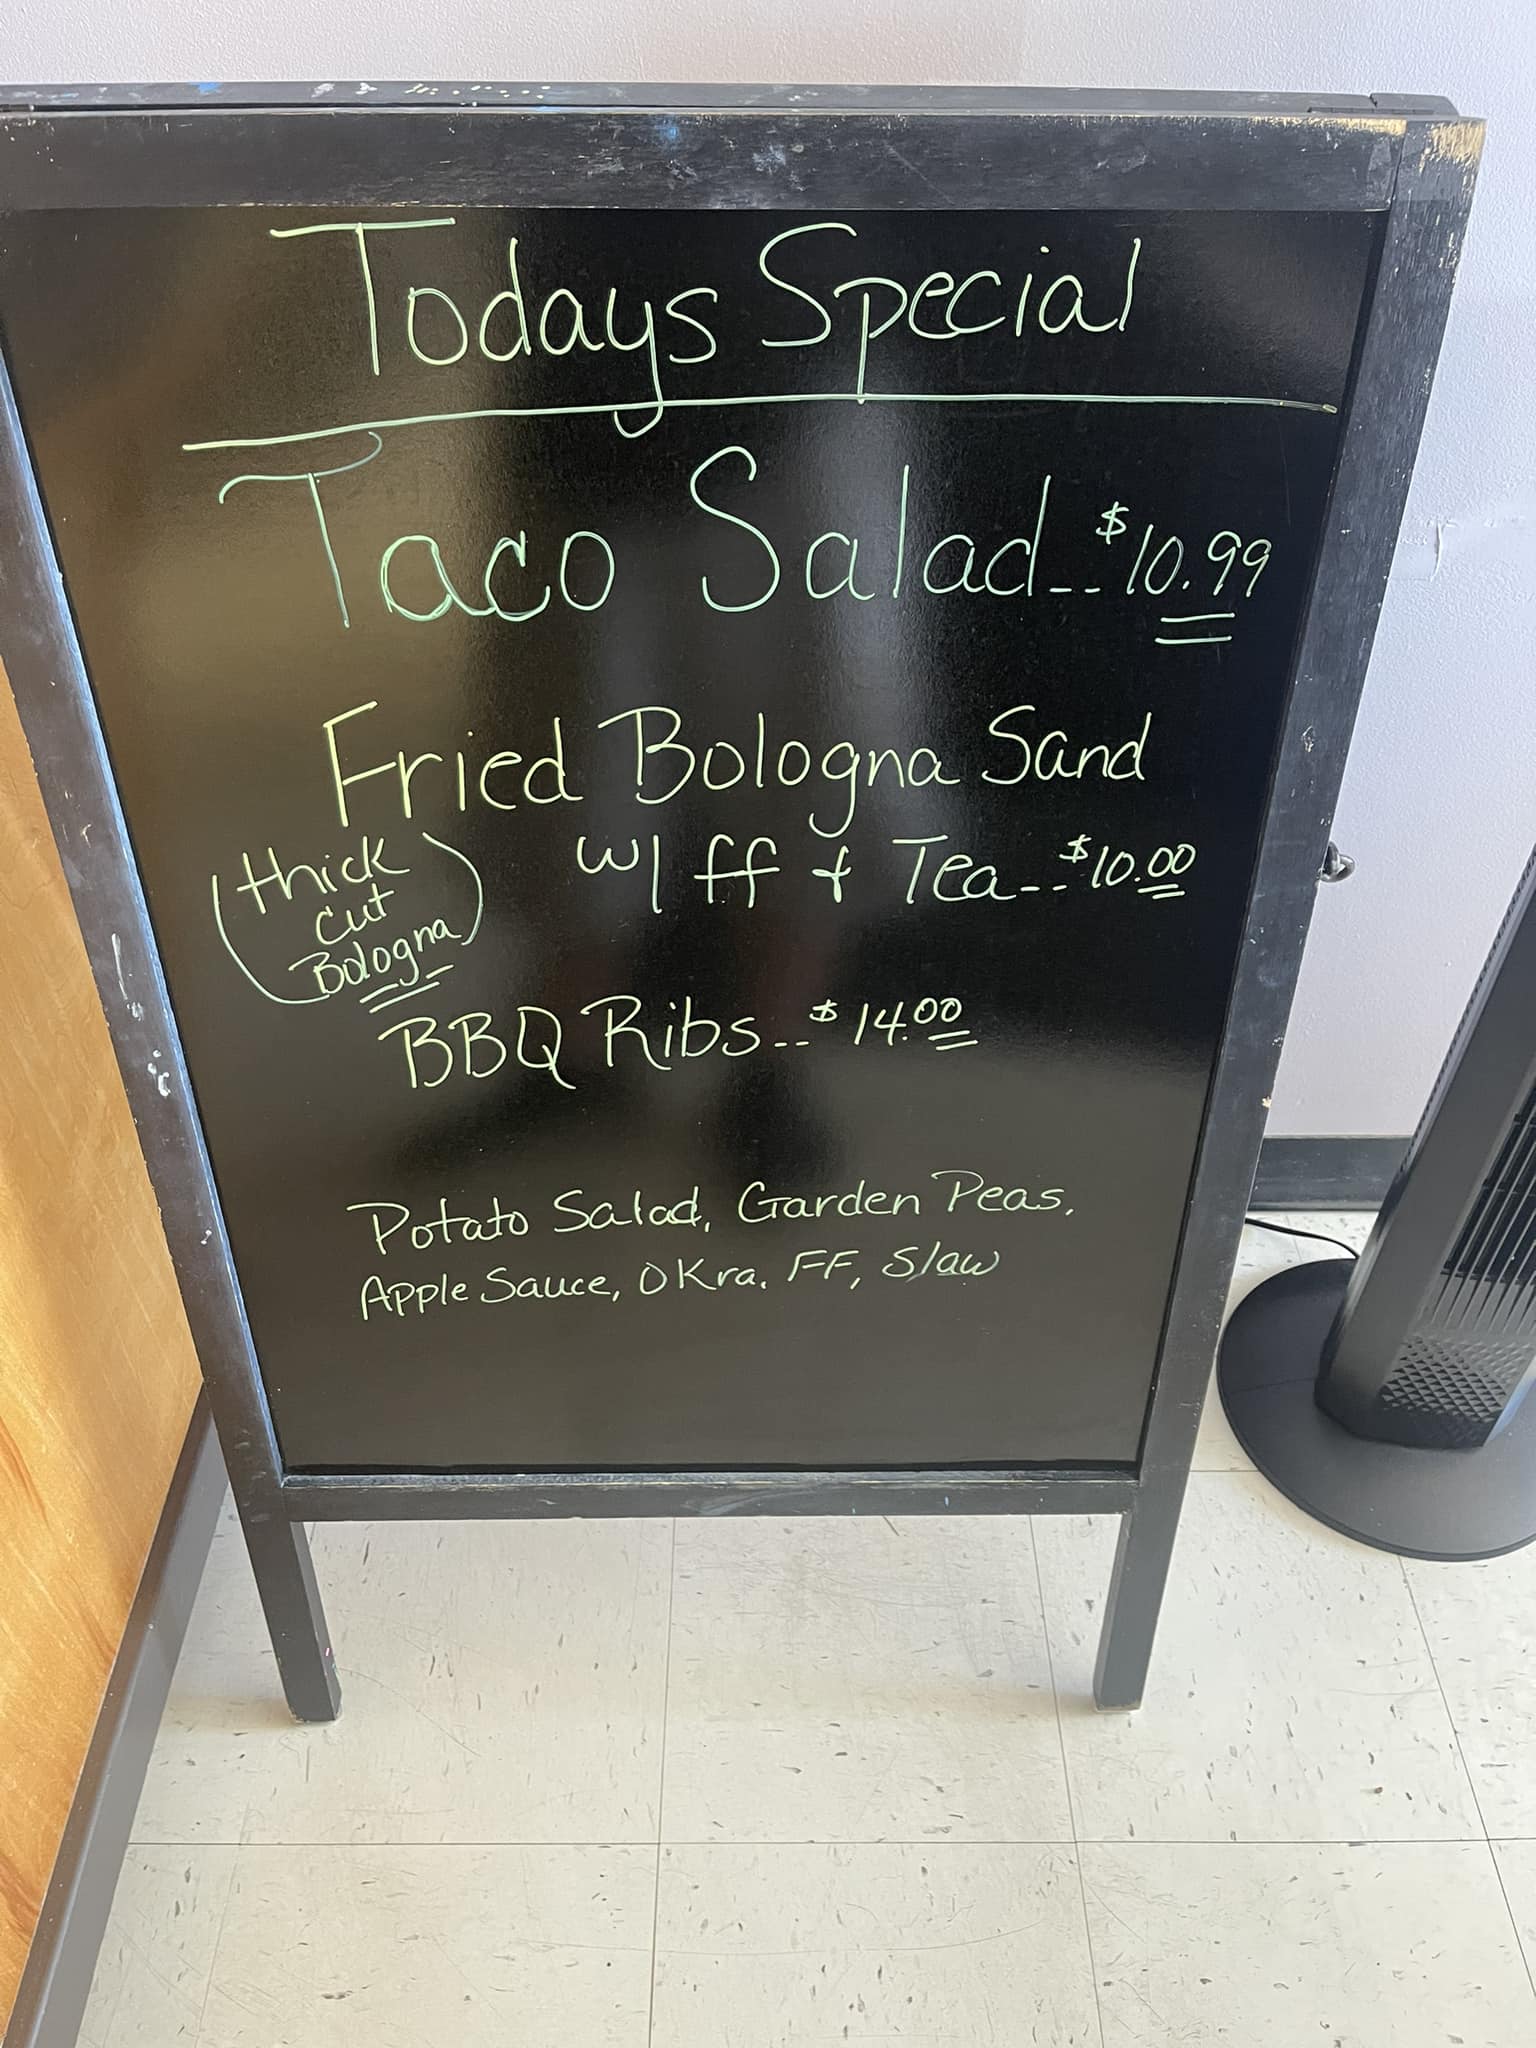 Todays Special
Taco Salad--$10.99
Fried Bologna Sand
w/ ff & Tea--$10.00
(thick
cut
Bologna)
BBQ Ribs--$14.00
Potato Salad, Garden Peas,
Apple Sauce, OKra, FF, Slaw